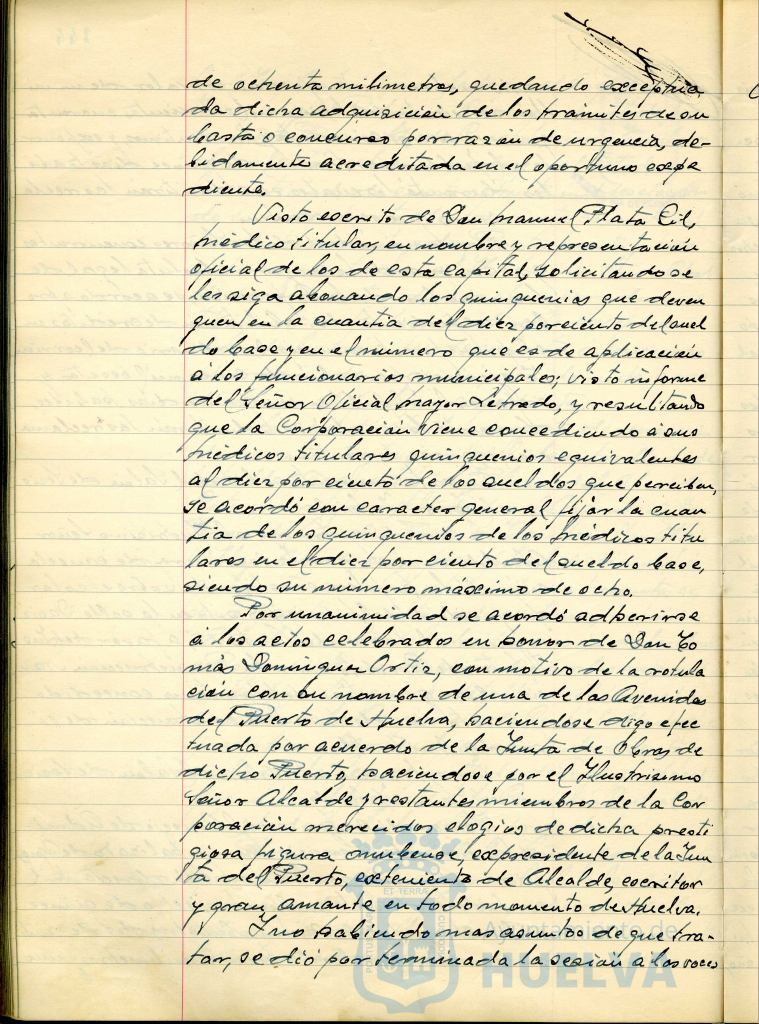 de ochenta milimetros, quedando exceptua
da dicha adquisicion de los tramites de su
basta o concurso por razón de urgencia, de-
bidamente acreditada en el oportuno expe
diente.
Visto escrito de Don Manuel Plata Gil,
médico titular, en nombre y representación
oficial de los de esta capital, solicitando se
les siga abonando los quinquenios que deven
guen en la cuantia del diez por ciento del suel
do base y en el número que es de aplicación
á los funcionarios municipales; visto informe
del Señor Oficial mayor Letrado, y resultando
que la Corporación viene concediendo á sus
médicos titulares quinquenios equivalentes
al diez por ciento de los sueldos que perciben,
se acordó con caracter general fijar la cuan
tia de los quinquenios de los médicos titu
lares en el diez por ciento del sueldo base,
siendo su número máximo de ocho.
Por unanimidad se acordó adherirse
á los actos celebrados en honor de Don To
más Dominguez Ortiz, con motivo de la rotula
ción con su nombre de una de las Avenidas
del Puerto de Huelva, haciendose digo efec
tuada por acuerdo de la Junta de Obras de
dicho Puerto, haciendose por el Ilustrisimo
Señor Alcalde y restantes miembros de la Cor
poración merecidos elogios de dicha presti
giosa figura onubense, expresidente de la Jun
ta del Puerto, exteniente de Alcalde, escritor
y gran amante en todo momento de Huelva.
Y no habiendo mas asuntos de que tra-
tar, se dió por terminada la sesión a las doce
Ayuntamiento de
HUELVA